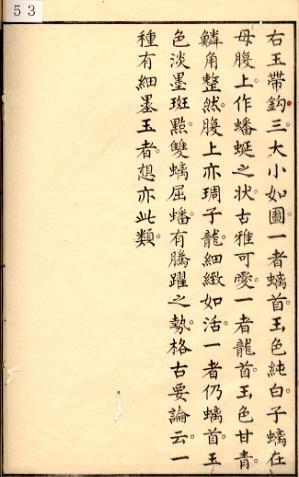 53
右玉帶鈎三大小如圖一者螭首玉色純白子螭在
母腹上作蟠蜒之状古雅可愛一者龍首玉色甘青
鱗角整然腹上亦琱子龍細緻如活一者仍螭首玉
色淡墨斑點雙螭屈蟠有騰躍之勢格古要論云一
種有細墨玉者想亦此類